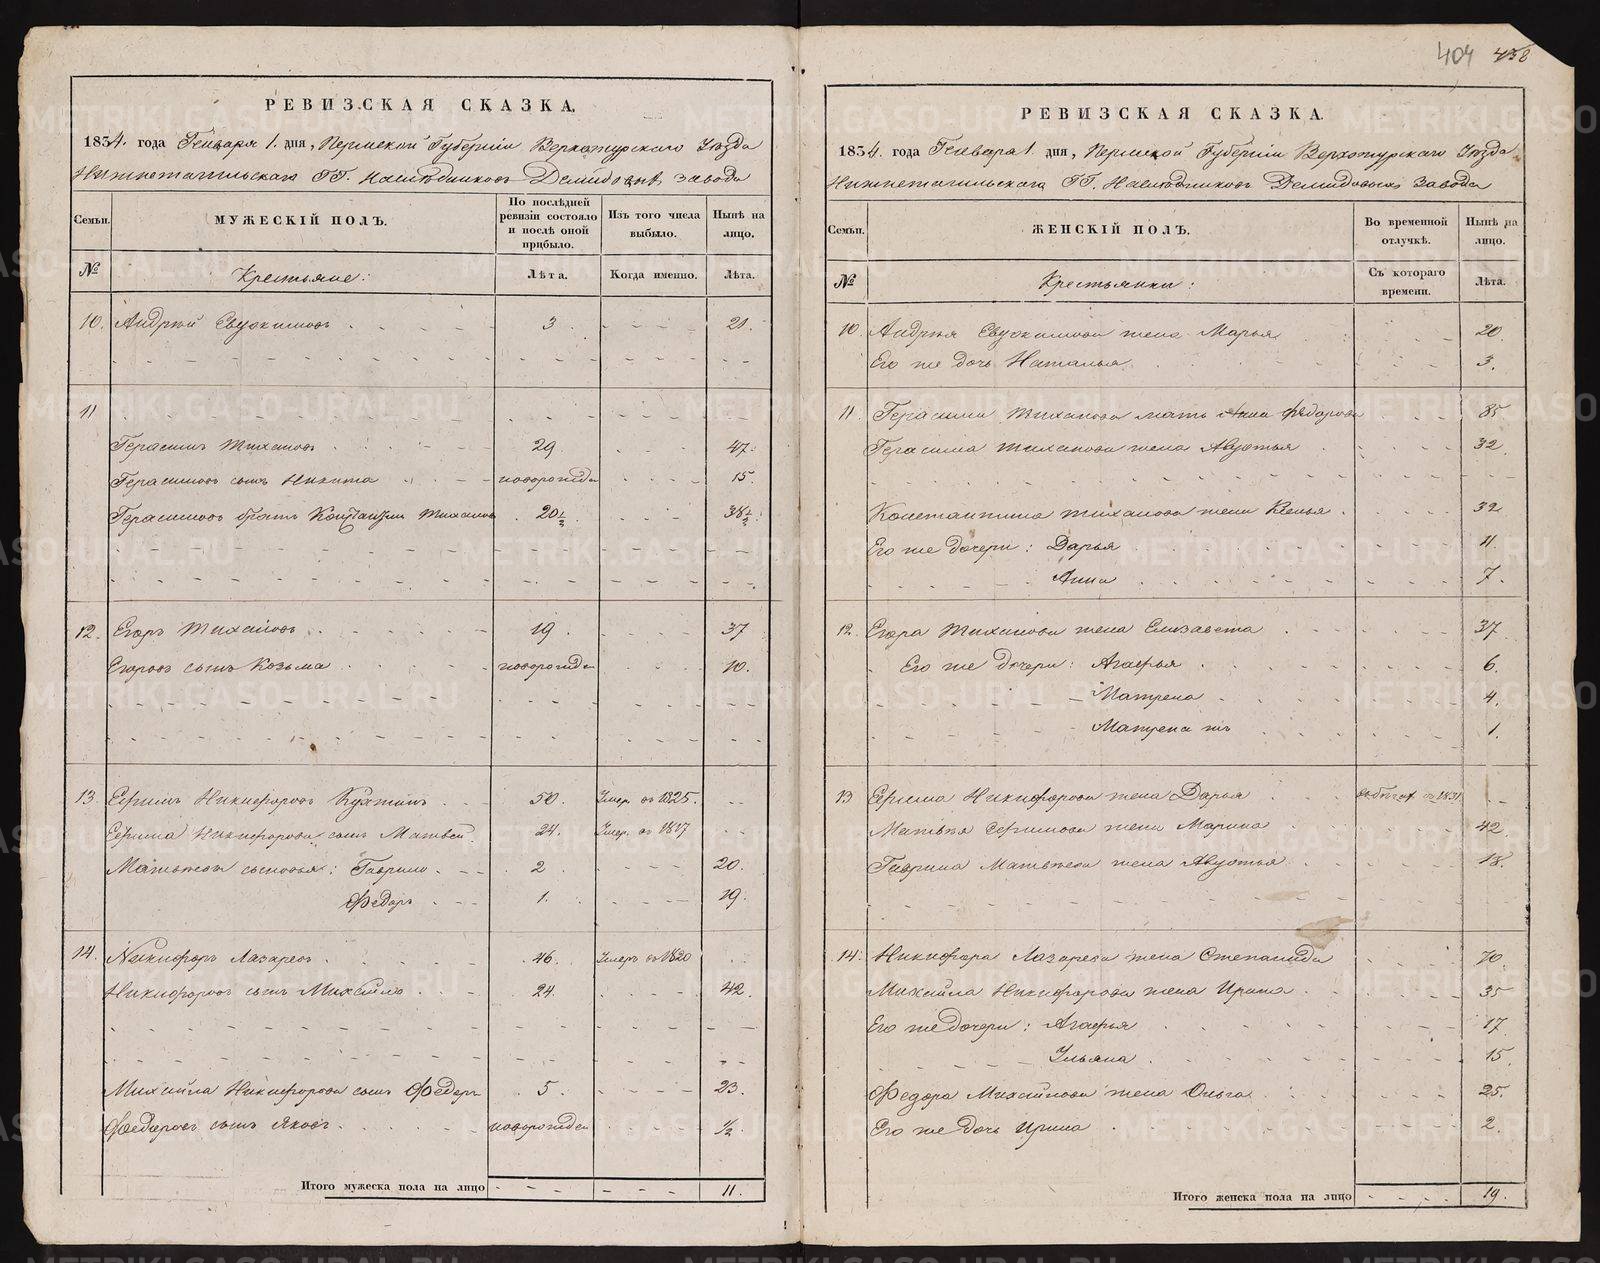 404 458
РЕВИЗСКАЯ СКАЗКА.
1834. года Генваря 1. дня, Пермской Губерніи Верхотурскаго Уѣзда
Нижнетагильскаго ГГ. Наслѣдниковъ Демидовыхъ завода
Семьи. МУЖЕСКІЙ ПОЛЪ. По послѣдней ревизіи состояло и послѣ оной прибыло. Изъ того числа выбыло. Нынѣ на лицо.
№ Крестьяне: Лѣта. Когда именно. Лѣта.
10. Андрѣй Евдокимовъ 3 21.
11
Герасимъ Тихановъ 29 47.
Герасимовъ сынъ Никита новорожден 15.
Герасимовъ братъ Константинъ Тихановъ 20½ 38½.
12. Егоръ Тихановъ 19. 37
Егоровъ сынъ Козьма новорожден 10.
13. Ефимъ Никифоровъ 50. Умер. въ 1825.
Ефима Никифорова сынъ Матвей 24. Умер. въ 1817
Матвѣевы сыновья: Гаврило 2 20.
Федоръ 1. 19.
14. Никифоръ Лазаревъ 46. Умеръ въ 1820
Никифоровъ сынъ Михайло 24. 42.
Михайла Никифорова сынъ Федоръ 5. 23.
Федоровъ сынъ Яковъ новорожден ½
Итого мужеска пола на лицо 11.
РЕВИЗСКАЯ СКАЗКА.
1834. года Генваря 1. дня, Пермской Губерніи Верхотурскаго Уѣзда
Нижнетагильскаго ГГ. Наслѣдниковъ Демидовыхъ Завода
Семьи. ЖЕНСКІЙ ПОЛЪ. Во временной отлучкѣ. Нынѣ на лицо.
№ Крестьянки: Съ котораго времени. Лѣта.
10 Андрѣя Евдокимова жена Марья 20.
Его же дочь Наталья 3.
11. Герасима Тиханова мать Анна Федорова 85
Герасима Тиханова жена Авдотья 32
Константина Тиханова жена 32
Его же дочери: Дарья 11.
Анна 7.
12. Егора Тиханова жена Елизавета 37
Его же дочери: Агафья 6.
Матрена 4.
Матрена жъ 1.
13 Ефима Никифорова жена Дарья 1831
Матвѣя Ефимова жена Марина 42
Гаврила Матвѣева жена Авдотья 18.
14. Никифора Лазарева жена Степанида 70.
Михайла Никифорова жена Ирина 35
Его же дочери: Агафья 17
Ульяна 15.
Федора Михайлова жена Ольга 25.
Его же дочь Ирина 2.
Итого женска пола на лицо 19.